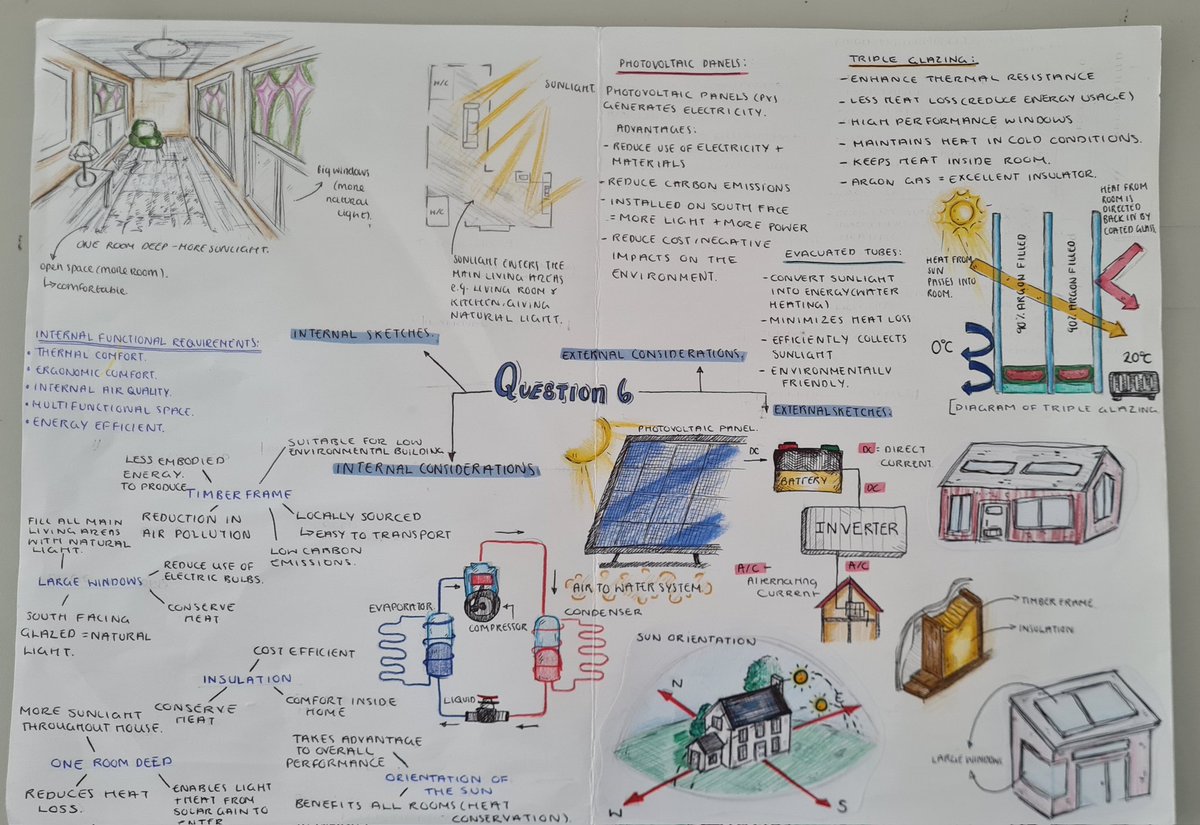 BIG WINDOWS
(MORE
NATURAL
LIGHT).
ONE ROOM DEEP - MORE SUNLIGHT.
OPEN SPACE (MORE ROOM).
↳ COMFORTABLE.
H/C
H/C
SUNLIGHT
SUNLIGHT ENTERS THE
MAIN LIVING AREAS
e.g. LIVING ROOM &
KITCHEN. GIVING
NATURAL LIGHT.
PHOTOVOLTAIC PANELS:
PHOTOVOLTAIC PANELS (PV)
GENERATES ELECTRICITY.
ADVANTAGES:
- REDUCE USE OF ELECTRICITY +
MATERIALS
- REDUCE CARBON EMISSIONS
- INSTALLED ON SOUTH FACE
= MORE LIGHT + MORE POWER
- REDUCE COST/NEGATIVE
IMPACTS ON THE
ENVIRONMENT.
TRIPLE GLAZING:
- ENHANCE THERMAL RESISTANCE
- LESS HEAT LOSS (REDUCE ENERGY USAGE)
- HIGH PERFORMANCE WINDOWS
- MAINTAINS HEAT IN COLD CONDITIONS.
- KEEPS HEAT INSIDE ROOM.
- ARGON GAS = EXCELLENT INSULATOR.
EVACUATED TUBES:
- CONVERT SUNLIGHT
INTO ENERGY (WATER
HEATING)
- MINIMIZES HEAT LOSS
- EFFICIENTLY COLLECTS
SUNLIGHT
- ENVIRONMENTALLY
FRIENDLY.
HEAT FROM
ROOM IS
DIRECTED
BACK IN BY
COATED GLASS.
HEAT FROM
SUN
PASSES INTO
ROOM.
90% ARGON FILLED
90% ARGON FILLED
0°C
20°C
[DIAGRAM OF TRIPLE GLAZING
INTERNAL FUNCTIONAL REQUIREMENTS:
• THERMAL COMFORT.
• ERGONOMIC COMFORT.
• INTERNAL AIR QUALITY.
• MULTIFUNCTIONAL SPACE.
• ENERGY EFFICIENT.
INTERNAL SKETCHES.
EXTERNAL CONSIDERATIONS.
QUESTION 6
INTERNAL CONSIDERATIONS
EXTERNAL SKETCHES:
LESS EMBODIED
ENERGY.
TO PRODUCE
SUITABLE FOR LOW
ENVIRONMENTAL BUILDING
TIMBER FRAME
REDUCTION IN
AIR POLLUTION
LOCALLY SOURCED
↳ EASY TO TRANSPORT
LOW CARBON
EMISSIONS.
FILL ALL MAIN
LIVING AREAS
WITH NATURAL
LIGHT.
LARGE WINDOWS
REDUCE USE OF
ELECTRIC BULBS.
CONSERVE
HEAT
SOUTH FACING
GLAZED = NATURAL
LIGHT.
COST EFFICIENT
INSULATION
CONSERVE
HEAT
COMFORT INSIDE
HOME
MORE SUNLIGHT
THROUGHOUT HOUSE.
ONE ROOM DEEP
REDUCES HEAT
LOSS.
ENABLES LIGHT
+ HEAT FROM
SOLAR GAIN TO
ENTER
TAKES ADVANTAGE
TO OVERALL
PERFORMANCE
ORIENTATION OF
THE SUN
BENEFITS ALL ROOMS (HEAT
CONSERVATION).
EVAPORATOR
COMPRESSOR
CONDENSER
LIQUID
AIR TO WATER SYSTEM
PHOTOVOLTAIC PANEL.
DC
BATTERY
DC = DIRECT
CURRENT
DC
INVERTER
A/C -
Alternating
Current
A/C
SUN ORIENTATION
N
E
W
S
TIMBER FRAME
INSULATION
LARGE WINDOW